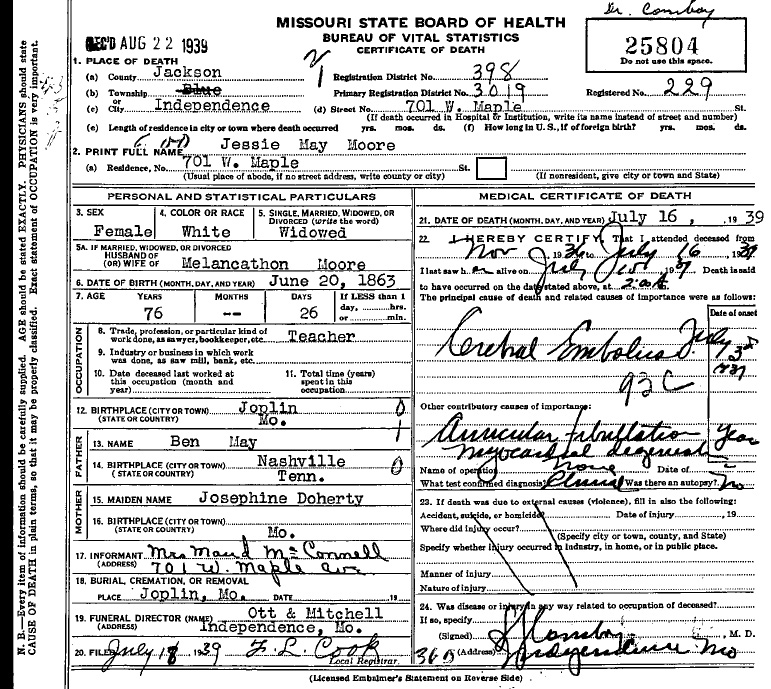 Dr. Comboy
REC'D AUG 22 1939
MISSOURI STATE BOARD OF HEALTH
BUREAU OF VITAL STATISTICS
CERTIFICATE OF DEATH
25804
Do not use this space.
1. PLACE OF DEATH
(a) County Jackson Registration District No. 398
(b) Township Blue Primary Registration District No. 3019 Registered No. 229
or
(c) City Independence (d) Street No. 701 W. Maple St.
(If death occurred in Hospital or Institution, write its name instead of street and number)
(e) Length of residence in city or town where death occurred yrs. mos. ds. (f) How long in U. S., if of foreign birth? yrs. mos. ds.
2. PRINT FULL NAME Jessie May Moore
(a) Residence, No. 701 W. Maple St.
(Usual place of abode, if no street address, write county or city) (If nonresident, give city or town and State)
PERSONAL AND STATISTICAL PARTICULARS
3. SEX Female
4. COLOR OR RACE White
5. SINGLE, MARRIED, WIDOWED, OR DIVORCED (write the word) Widowed
5A. IF MARRIED, WIDOWED, OR DIVORCED
HUSBAND OF
(OR) WIFE OF Melancathon Moore
6. DATE OF BIRTH (MONTH, DAY, AND YEAR) June 20, 1863
7. AGE YEARS MONTHS DAYS If LESS than 1
76 -- 26 day, hrs.
or min.
OCCUPATION
8. Trade, profession, or particular kind of work done, as sawyer, bookkeeper, etc. Teacher
9. Industry or business in which work was done, as saw mill, bank, etc.
10. Date deceased last worked at this occupation (month and year)
11. Total time (years) spent in this occupation
12. BIRTHPLACE (CITY OR TOWN) Joplin 0
(STATE OR COUNTRY) Mo. 1
FATHER
13. NAME Ben May
14. BIRTHPLACE (CITY OR TOWN) Nashville 0
(STATE OR COUNTRY) Tenn.
MOTHER
15. MAIDEN NAME Josephine Doherty
16. BIRTHPLACE (CITY OR TOWN)
(STATE OR COUNTRY) Mo.
17. INFORMANT Mrs Maud McConnell
(ADDRESS) 701 W. Maple Ave
18. BURIAL, CREMATION, OR REMOVAL
PLACE Joplin, Mo. DATE 19
19. FUNERAL DIRECTOR (NAME) Ott & Mitchell
(ADDRESS) Independence, Mo.
20. FILED July 18 1939 F. L. Cook
Local Registrar.
MEDICAL CERTIFICATE OF DEATH
21. DATE OF DEATH (MONTH, DAY, AND YEAR) July 16, 1939
22. I HEREBY CERTIFY, That I attended deceased from
Nov 1936 to July 16 1939
I last saw h er alive on July 15 1939 Death is said
to have occurred on the date stated above, at 2:00 A.
The principal cause of death and related causes of importance were as follows:
Date of onset
Cerebral Embolus July 3rd
1939
92C
Other contributory causes of importance:
Auricular fibrillation Year
myocardial
Name of operation none Date of
What test confirmed diagnosis? Clinical Was there an autopsy? No
23. If death was due to external causes (violence), fill in also the following:
Accident, suicide, or homicide? Date of injury , 19
Where did injury occur?
(Specify city or town, county, and State)
Specify whether injury occurred in industry, in home, or in public place.
Manner of injury
Nature of injury
24. Was disease or injury in any way related to occupation of deceased?
If so, specify
(Signed) , M. D.
(Address) Independence Mo
(Licensed Embalmer's Statement on Reverse Side)
N. B.—Every item of information should be carefully supplied. AGE should be stated EXACTLY. PHYSICIANS should state
CAUSE OF DEATH in plain terms, so that it may be properly classified. Exact statement of OCCUPATION is very important.